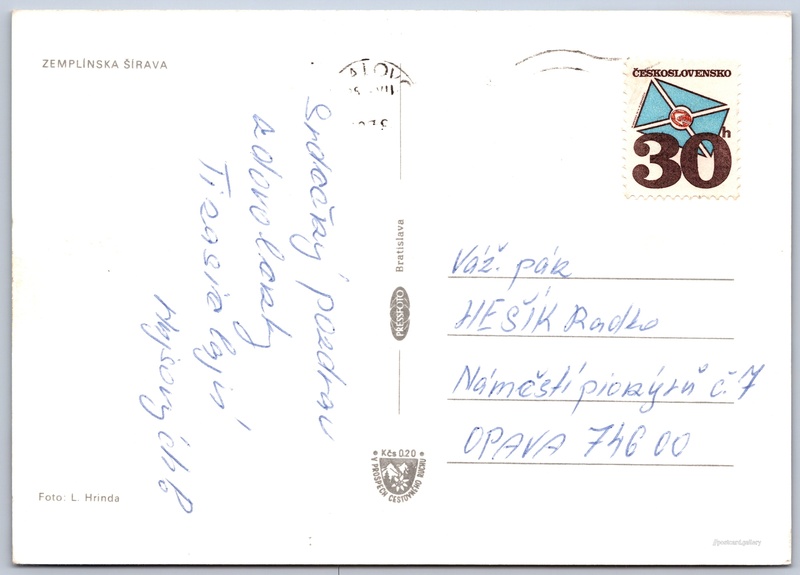 ZEMPLÍNSKA ŠÍRAVA
Srdečný pozdrav
z dovolenky
Ti zasielajú
Foto: L. Hrinda
PRESSFOTO Bratislava
Kčs 0.20
V PROSPĚCH CESTOVNÉHO RUCHU
ČESKOSLOVENSKO
30h
Váž. pán
HEŠÍK Radko
Náměstí pionýrů č. 7
OPAVA 746 00